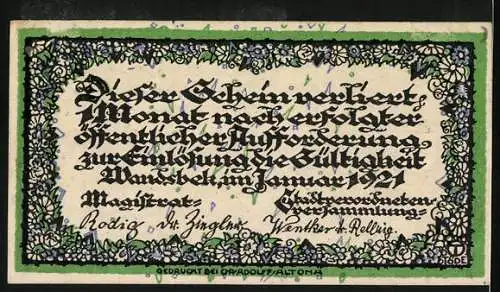 Dieser Schein verliert
1 Monat nach erfolgter
öffentlicher Aufforderung
zur Einlösung die Gültigkeit
Wandsbek, im Januar 1921
Magistrat- Stadtverordneten-
versammlung-
Rodig Dr. Ziegler Wentker
GEDRUCKT BEI ADOLFF ALTONA